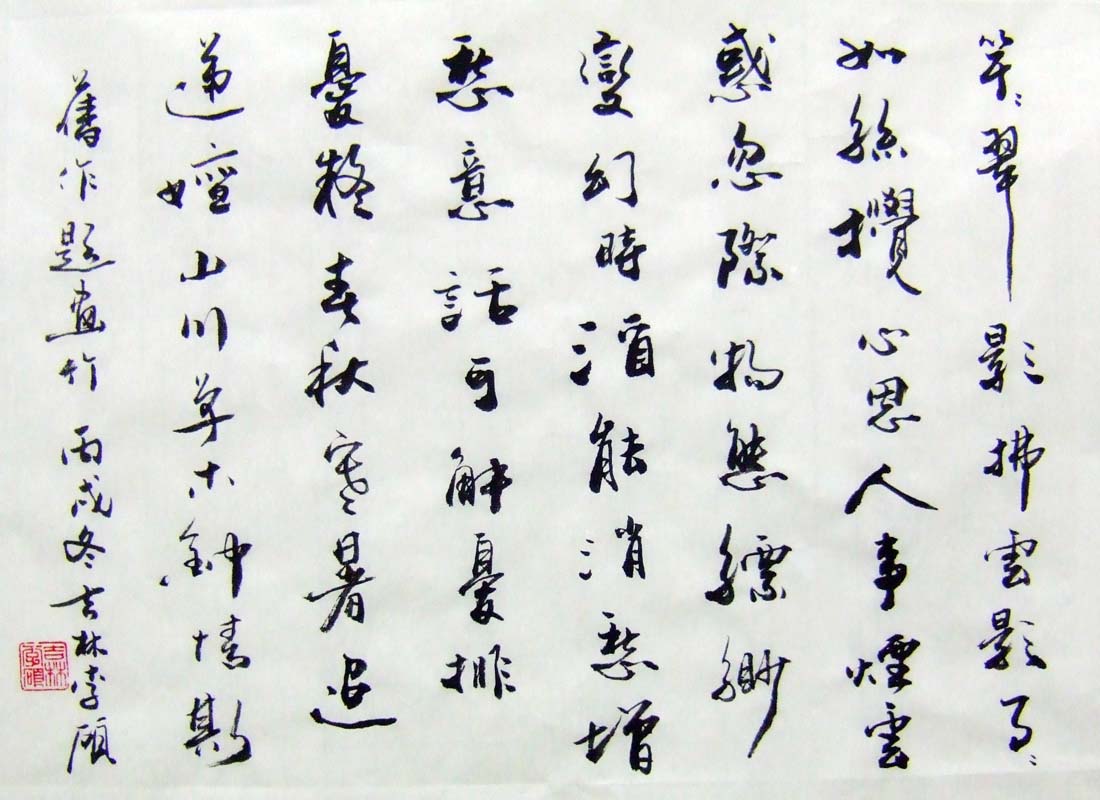 竿〻翠影拂雲影了〻
如絲攪心思人事煙雲
惑忽際物態縹緲
變幻時酒能消愁增
愁意話可解憂排
憂春秋寒暑迢
遞嬗山川草木鍾情斯
舊作題畫竹 丙戌冬吉林李碩